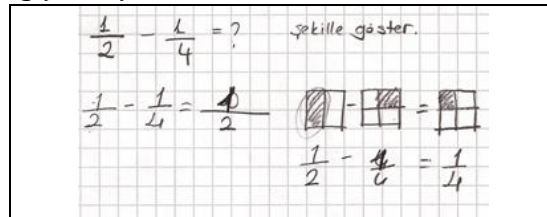 1/2 - 1/4 = ? şekille göster.
1/2 - 1/4 = /2
- =
1/2 - = 1/4